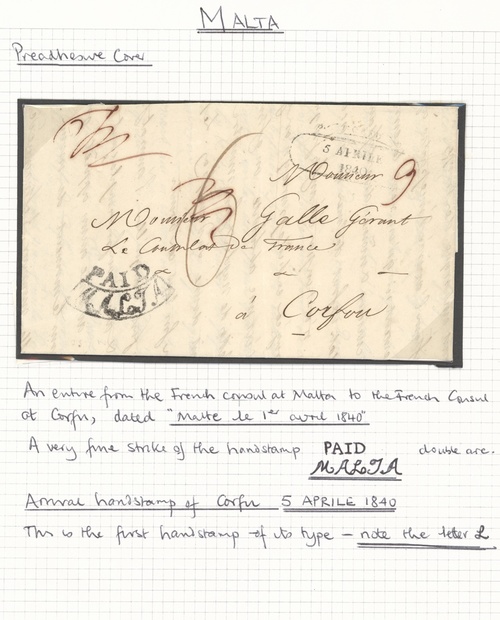 MALTA
Preadhesive Cover
5 APRILE
1840
Monsieur 9
Monsieur Galle Gérant
Le Consulat de France
à Corfou
PAID
MALTA
An entire from the French consul at Malta to the French Consul
at Corfu, dated "Malte le 1er avril 1840"
A very fine strike of the handstamp PAID double arc.
MALTA
Arrival handstamp of Corfu 5 APRILE 1840
This is the first handstamp of its type – note the letter L